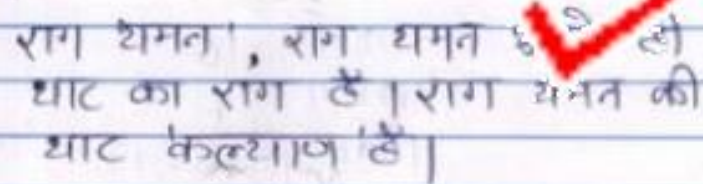 राग यमन', राग यमन
थाट का राग है। राग यमन की
थाट 'कल्याण' है।